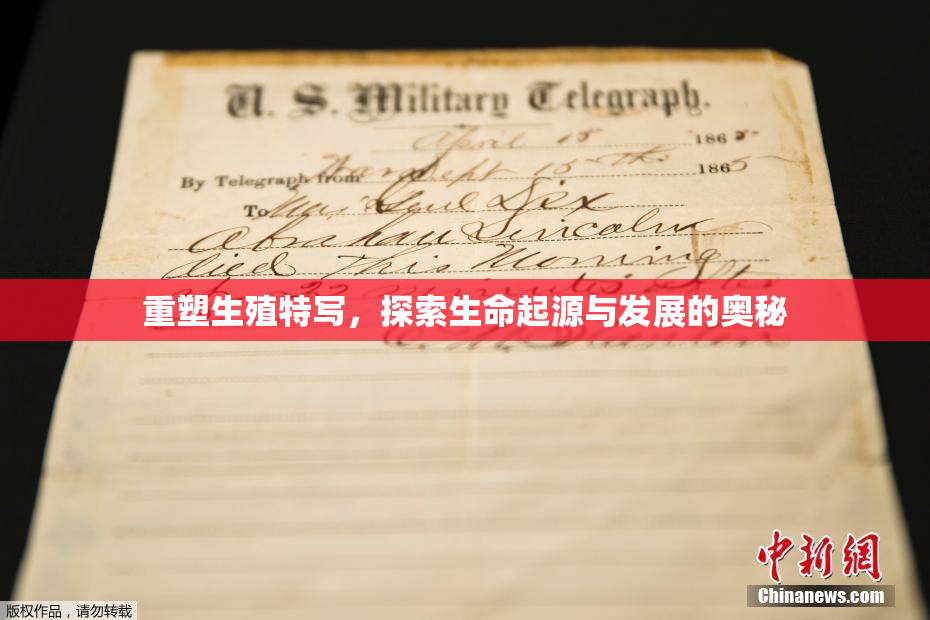 U. S. Military Telegraph.
April 15 1865.
By Telegraph from War Dept 15th 1865
To Maj Genl Dix
Abraham Lincoln
died This Morning
at 22 minutes after
重塑生殖特写，探索生命起源与发展的奥秘
E. M. Stanton
中新网
Chinanews.com
版权作品，请勿转载